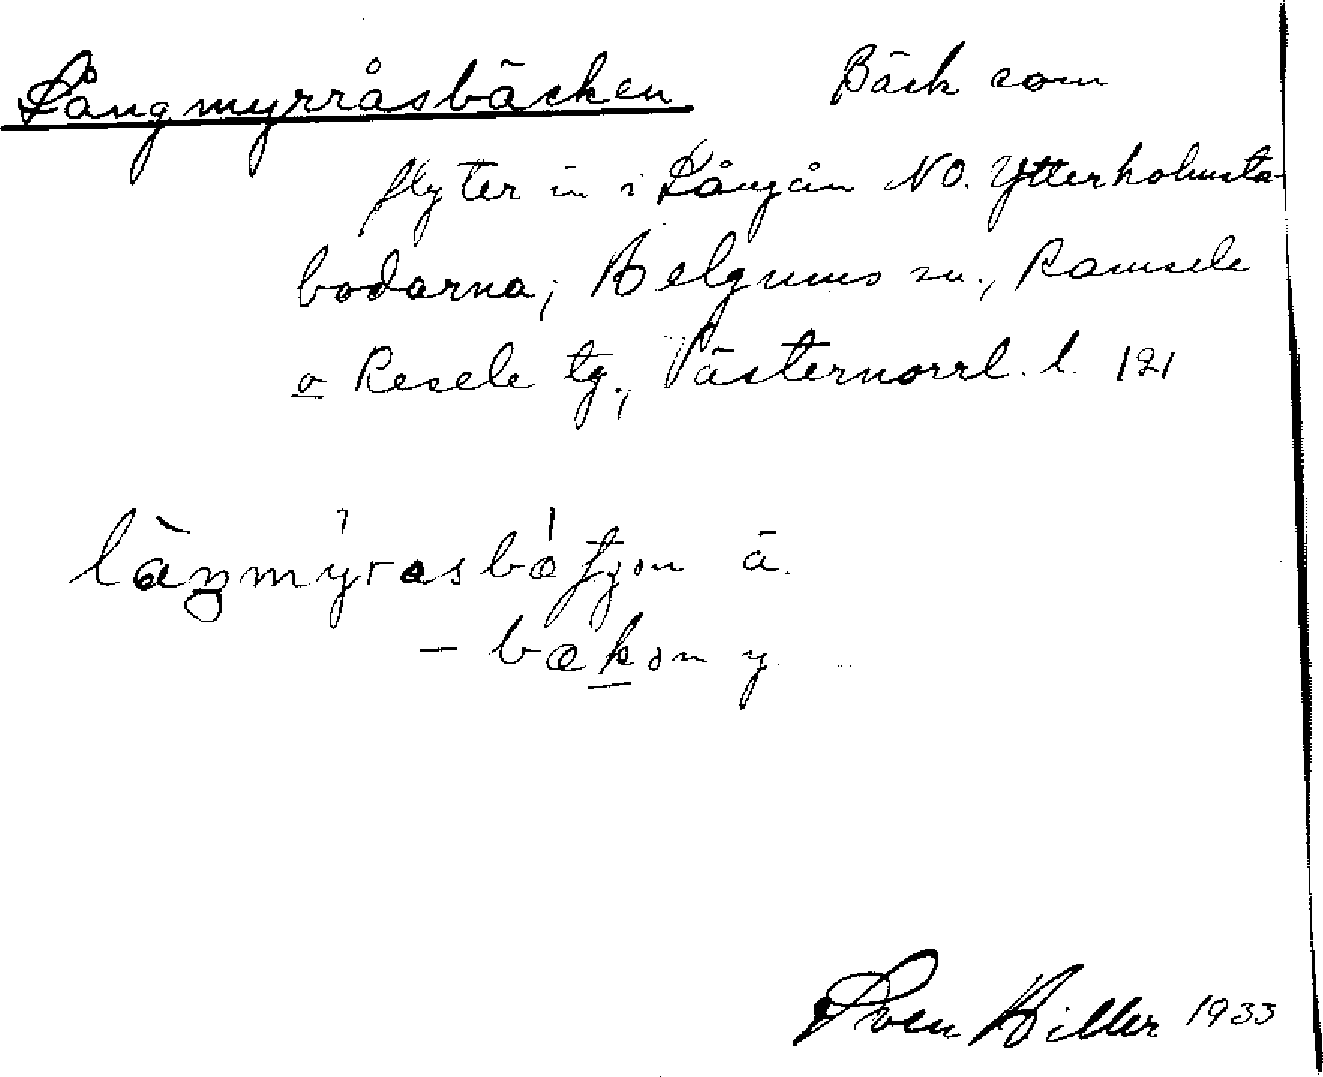 Långmyrråsbäcken Bäck som
flyter in i Långån NO. Ytterholmsta-
bodarna; Helgums sn., Ramsele
o Resele tg., Västernorrl. l. 121
ä.
y
Sven Hiller 1933